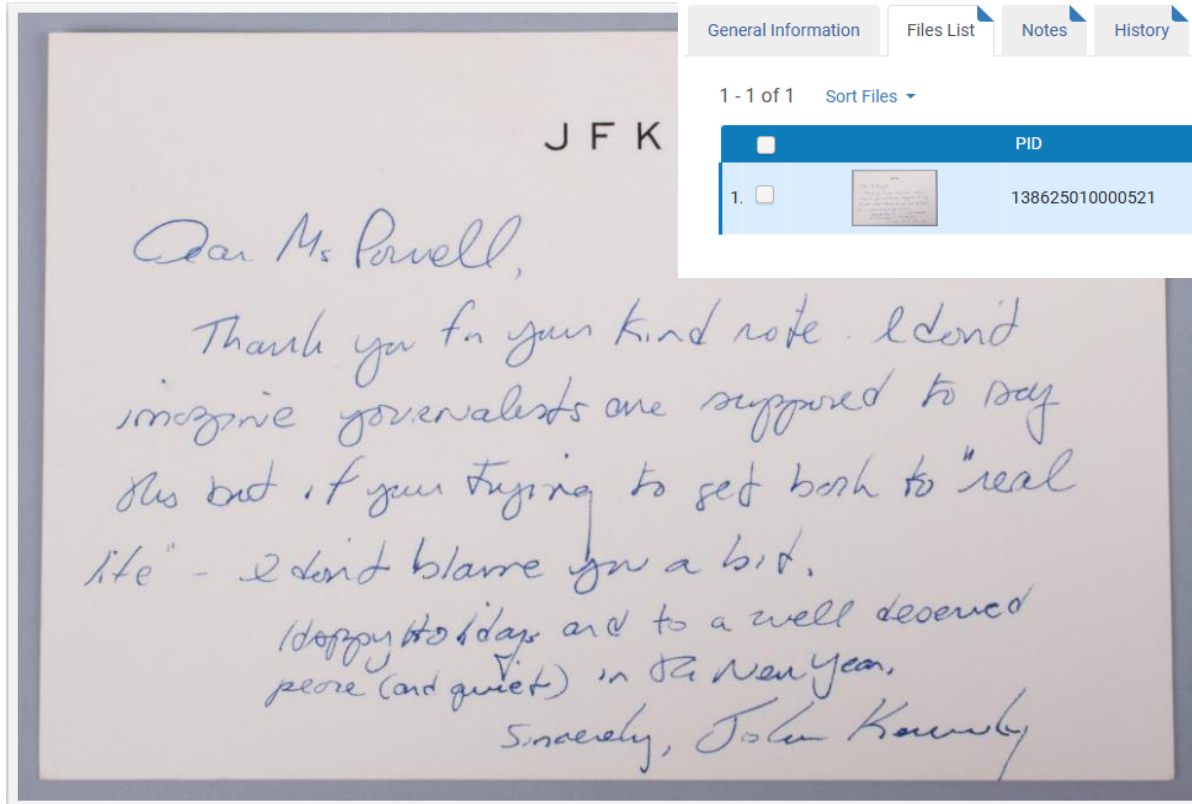 General Information Files List Notes History
1 - 1 of 1 Sort Files
PID
1. 138625010000521
JFK
Dear Ms Powell,
Thank you for your kind note. I don't
imagine journalists are supposed to say
this but if your trying to get back to "real
life" - I don't blame you a bit.
Happy Holidays and to a well deserved
peace (and quiet) in the New Year.
Sincerely, John Kennedy